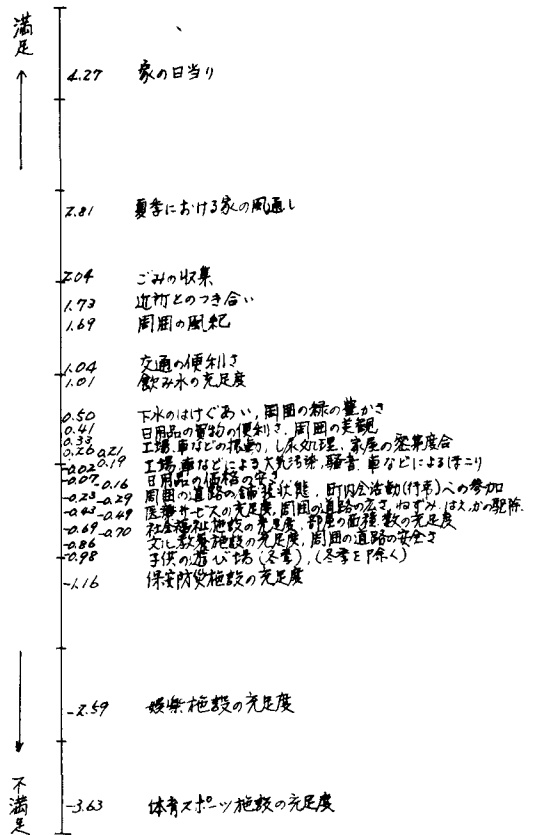 満足
4.27 家の日当り
2.81 夏季における家の風通し
2.04 ごみの収集
1.73 近所とのつき合い
1.69 周囲の風紀
1.04 交通の便利さ
1.01 飲み水の充足度
0.50 下水のはけぐあい, 周囲の緑の豊かさ
0.41 日用品の買物の便利さ, 周囲の美観
0.33 0.26 0.21 工場, 車などの振動, し尿処理, 家屋の密集度合
-0.02 0.19 工場, 車などによる大気汚染, 騒音, 車などによるほこり
-0.07 -0.16 日用品の価格の安さ
-0.23 -0.29 周囲の道路の舗装状態, 町内会活動(行事)への参加
-0.43 -0.49 医療サービスの充足度, 周囲の道路の広さ, ねずみ, はえ, かの駆除
-0.69 -0.70 社会福祉施設の充足度, 部屋の面積, 数の充足度
-0.86 文化教養施設の充足度, 周囲の道路の安全さ
-0.98 子供の遊び場(冬季), (冬季を除く)
-1.16 保安防災施設の充足度
-2.59 娯楽施設の充足度
不満足
-3.63 体育スポーツ施設の充足度